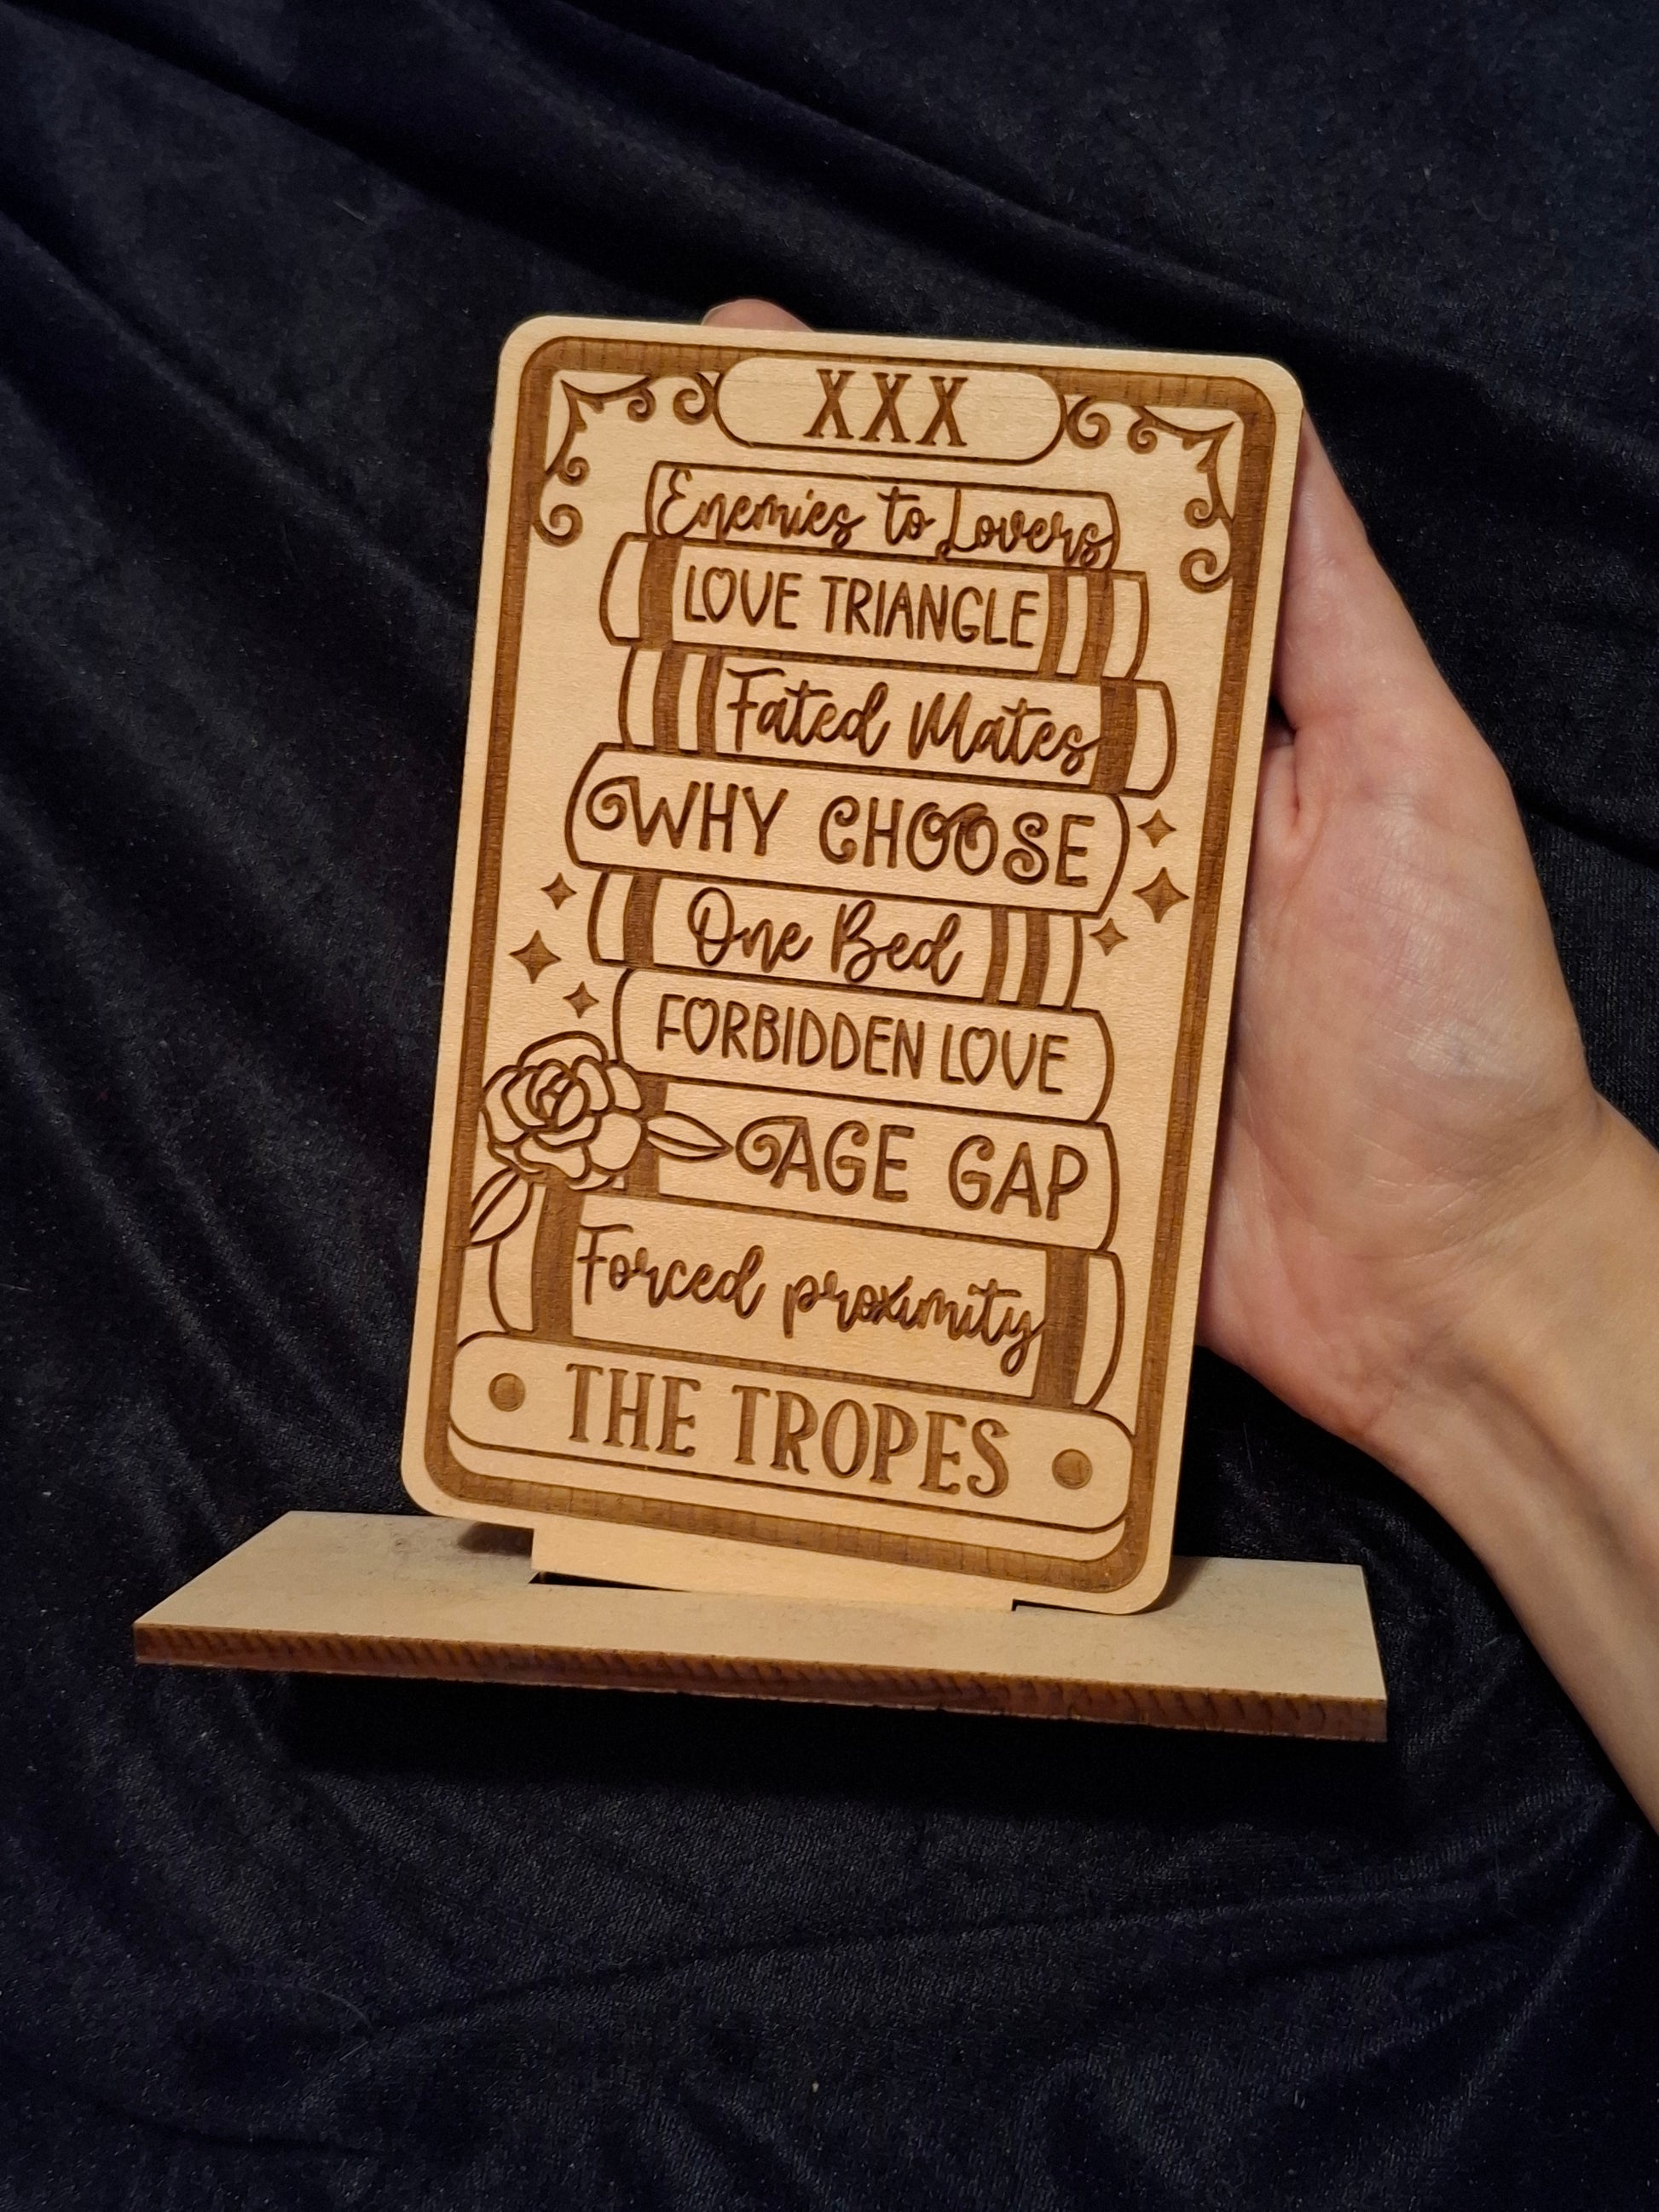 XXX
Enemies to Lovers
LOVE TRIANGLE
Fated Mates
WHY CHOOSE
One Bed
FORBIDDEN LOVE
AGE GAP
Forced proximity
THE TROPES